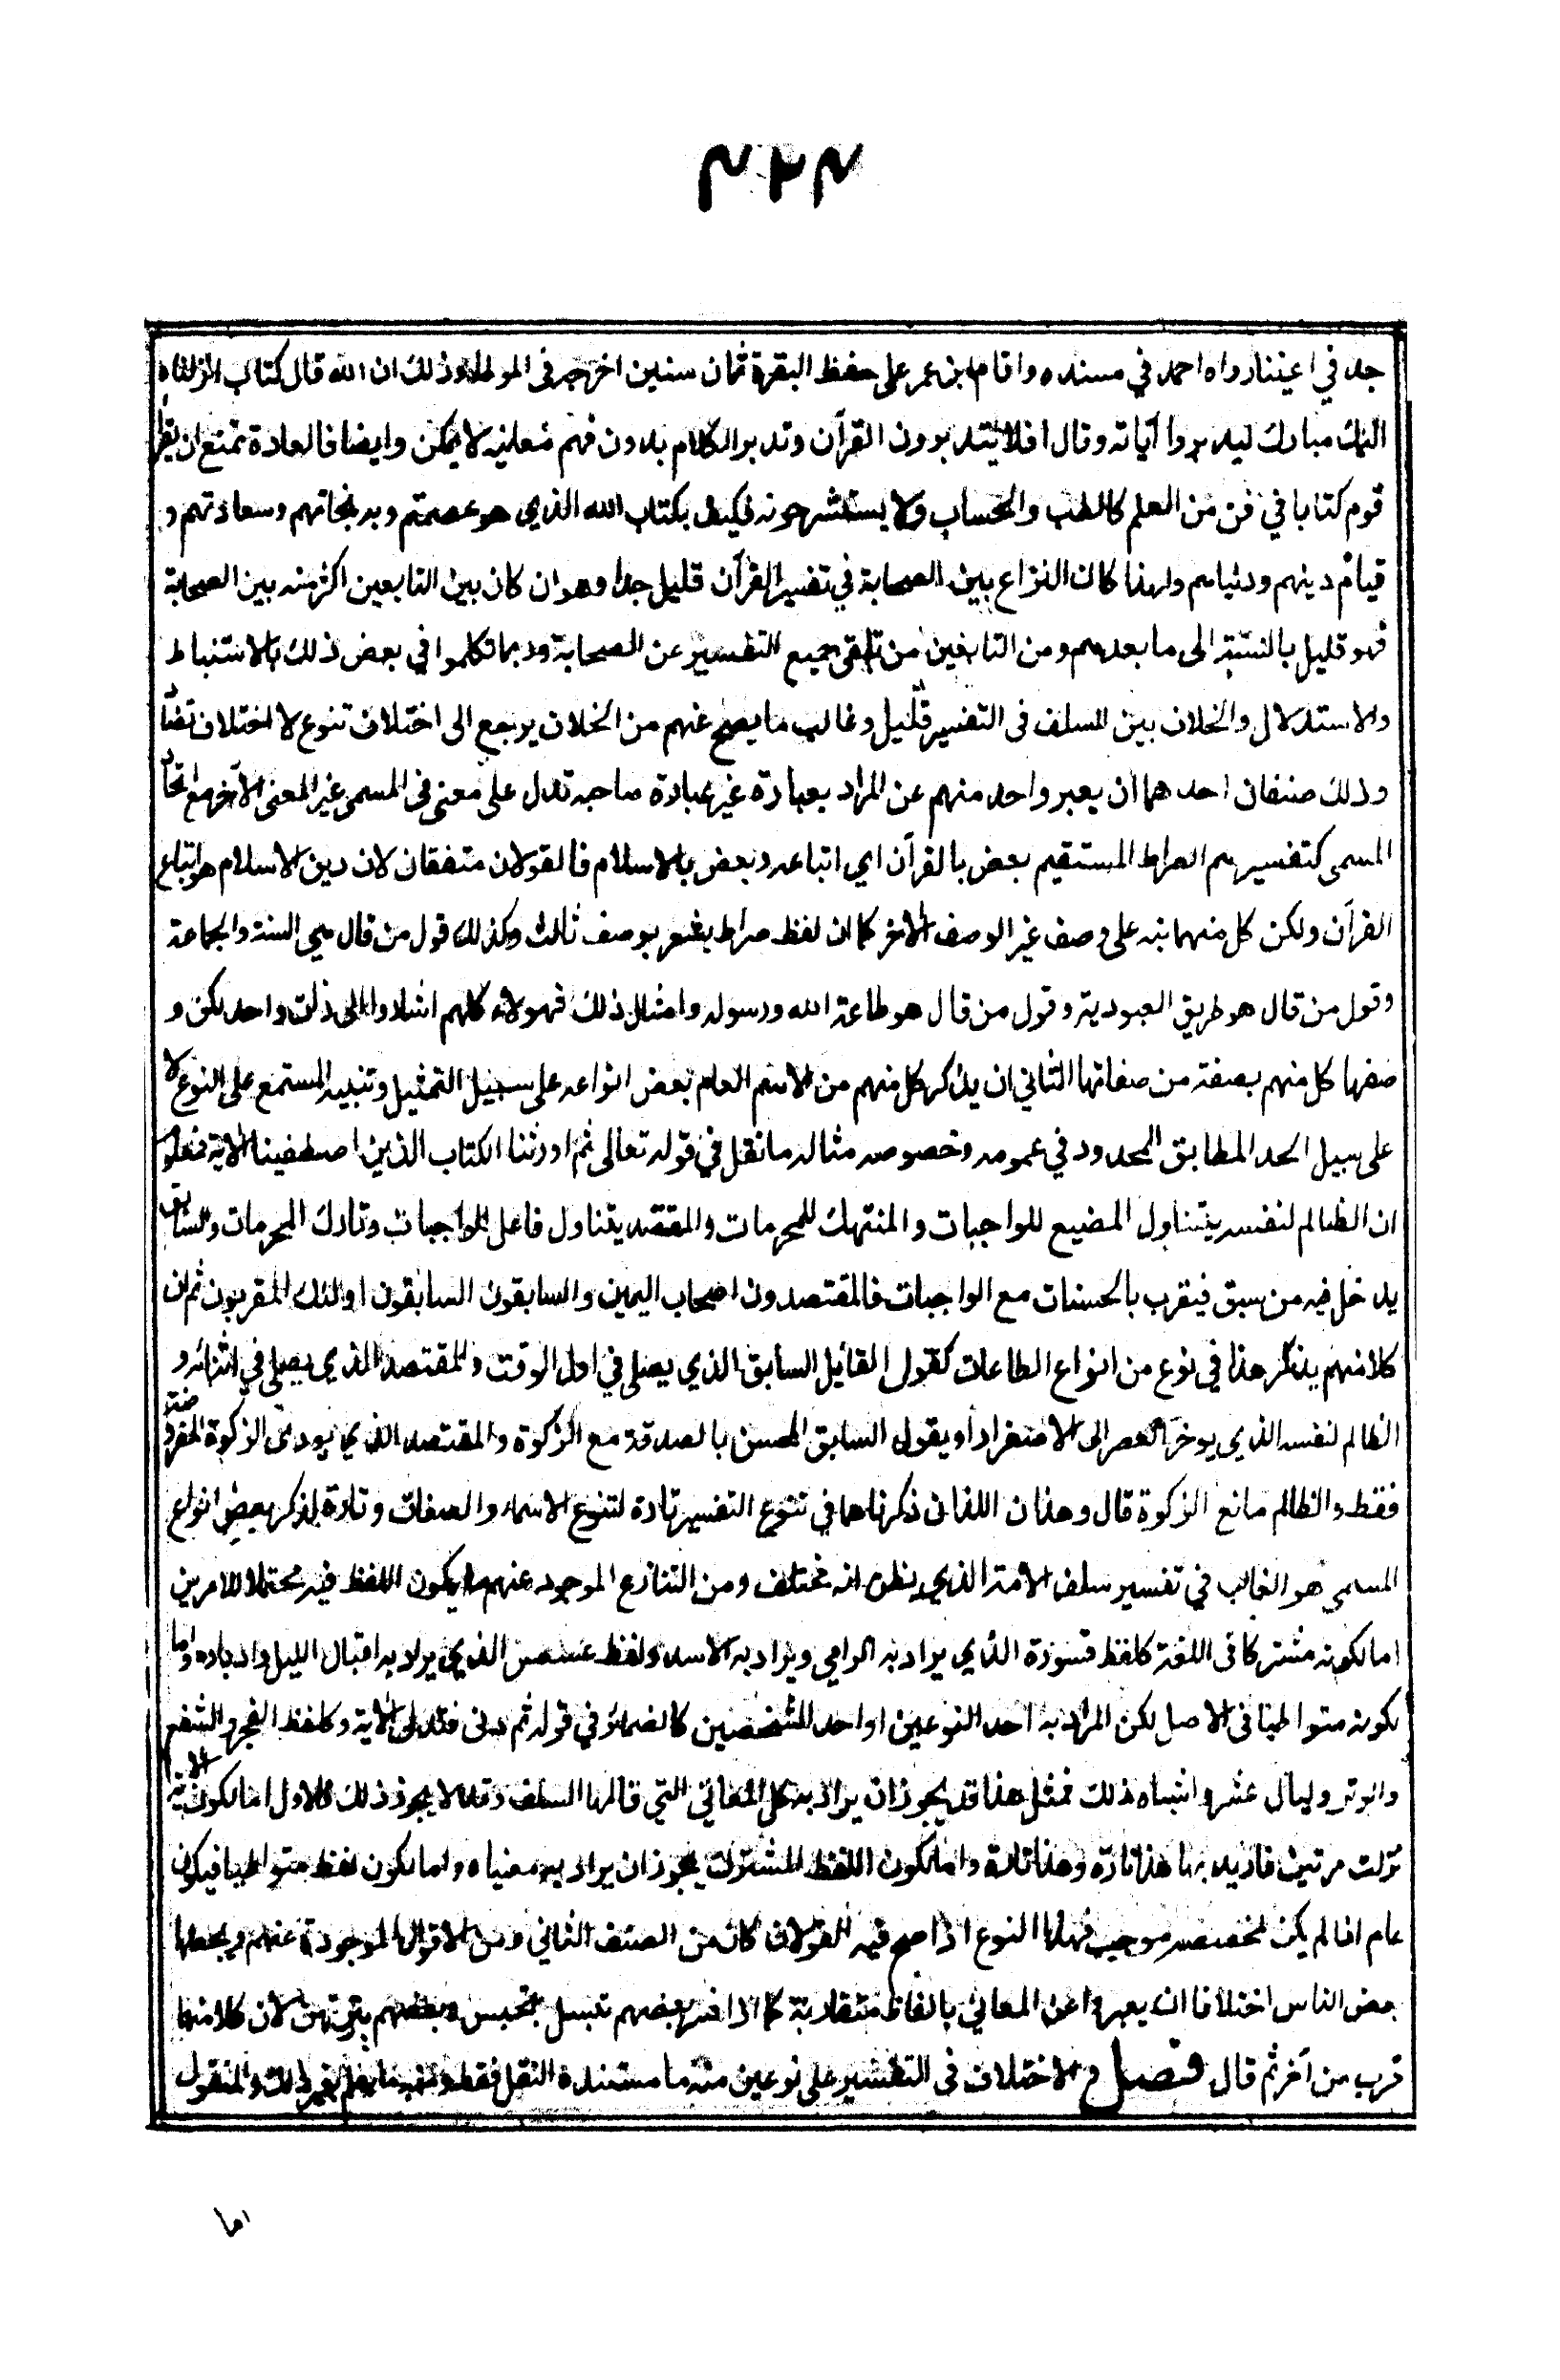 ۴۲۴
جد في اعيننا رواه احمد في مسنده واقام ابن عمر على حفظ البقرة ثمان سنين اخرجه فى الموطا وذلك ان الله قال كتاب انزلناه
اليك مبارك ليدبروا آياته وقال افلا يتدبرون القرآن وتدبر الكلام بدون فهم معانيه لا يمكن وايضا فالعادة تمنع ان يقرأ
قوم كتابا في فن من العلم كالطب والحساب ولا يستشرحونه فكيف بكتاب الله الذي هو عصمتهم وبه نجاتهم وسعادتهم و
قيام دينهم ودنياهم ولهذا كان النزاع بين الصحابة في تفسير القرآن قليل جدا وهو ان كان بين التابعين اكثر منه بين الصحابة
فهو قليل بالنسبة الى ما بعدهم ومن التابعين من تلقى جميع التفسير عن الصحابة وربما تكلموا في بعض ذلك بالاستنباط
والاستدلال والخلاف بين السلف فى التفسير قليل وغالب ما يصح عنهم من الخلاف يرجع الى اختلاف تنوع لا اختلاف تضاد
وذلك صنفان احدهما ان يعبر واحد منهم عن المراد بعبارة غير عبارة صاحبه تدل على معنى فى المسمى غير المعنى الآخر مع اتحاد
المسمى كتفسيرهم الصراط المستقيم بعض بالقرآن اي اتباعه وبعض بالاسلام فالقولان متفقان لان دين الاسلام هو اتباع
القرآن ولكن كل منهما نبه على وصف غير الوصف الآخر كما ان لفظ صراط يشعر بوصف ثالث وكذلك قول من قال هي السنة والجماعة
وقول من قال هو طريق العبودية وقول من قال هو طاعة الله ورسوله وامثال ذلك فهولاء كلهم اشاروا الى ذات واحد لكن و
صفها كل منهم بصفة من صفاتها الثاني ان يذكر كل منهم من الاسم العام بعض انواعه على سبيل التمثيل وتنبيه المستمع على النوع لا
على سبيل الحد المطابق المحدود في عمومه وخصوصه مثاله ما نقل في قوله تعالى ثم اورثنا الكتاب الذين اصطفينا الاية فمعلوم
ان الظالم لنفسه يتناول المضيع للواجبات والمنتهك للمحرمات والمقتصد يتناول فاعل الواجبات وتارك المحرمات والسابق
يدخل فيه من سبق فيقرب بالحسنات مع الواجبات فالمقتصدون اصحاب اليمين والسابقون السابقون اولئك المقربون ثم ان
كلا منهم يذكر هذا في نوع من انواع الطاعات كقول القائل السابق الذي يصلى في اول الوقت والمقتصد الذي يصلى في اثنائه و
الظالم لنفسه الذي يوخر العصر الى الاصفرار او يقول السابق المحسن بالصدقة مع الزكوة والمقتصد الذي يودى الزكوة المفروضة
فقط والظالم مانع الزكوة قال وهذان اللذان ذكرناهما في تنوع التفسير تارة لتنوع الاسماء والصفات وتارة لذكر بعض انواع
المسمى هو الغالب في تفسير سلف الامة الذي يظن انه مختلف ومن التنازع الموجود عنهم ما يكون اللفظ فيه محتملا للامرين
اما لكونه مشتركا فى اللغة كلفظ قسورة الذي يراد به الرامي ويراد به الاسد ولفظ عسعس الذي يراد به اقبال الليل وادباره واما
لكونه متواطيا فى الاصل لكن المراد به احد النوعين او احد الشخصين كالضمائر في قوله ثم دنى فتدلى الاية وكلفظ الفجر والشفع
والوتر وليال عشر واشباه ذلك فمثل هذا قد يجوز ان يراد به كل المعاني التي قالها السلف وقد لا يجوز ذلك فالاول اما لكون الاية
نزلت مرتين فاريد بها هذا تارة وهذا تارة واما لكون اللفظ المشترك يجوز ان يراد به معنياه واما لكون لفظ متواطيا فيكون
عام اذا لم يكن لخصصه موجب فهذا النوع اذا صح فيه القولان كان من الصنف الثاني ومن الاقوال الموجودة عنهم ويجعلها
بعض الناس اختلافا ان يعبروا عن المعاني بالفاظ متقاربة كما اذا فسر بعضهم تبسل بتحبس وبعضهم بترتهن لان كلا منهما
قريب من آخر ثم قال فصل والاختلاف فى التفسير على نوعين منه ما مستنده النقل فقط ومنه ما يعلم بغير ذلك والمنقول
اما